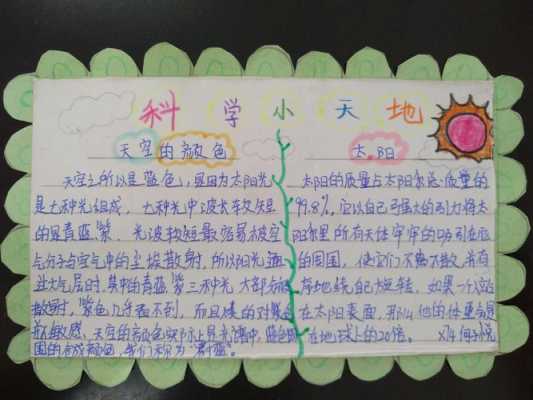 科学小天地
天空的颜色
天空之所以是蓝色,是因为太阳光
是七种光组成,七种光中波长较短
的是青蓝紫,光波较短最容易被空
气分子与空气中的尘埃散射,所以阳光通
过大气层时,其中的青蓝紫三种光大部分被
散射,紫色几乎看不到,而且人的对紫色
敏感,天空的颜色实际上是光谱中,蓝色
围的合成颜色,我们称为"蔚蓝"。
太阳
太阳的质量占太阳系总质量的
99.8%,它以自己强大的引力将太
阳系里所有天体牢牢的吸引在它
的周围,使它们不离不散,井有
序地绕自己旋转,如果一个人站
在太阳表面,那么他的体重会是
在地球上的20倍。